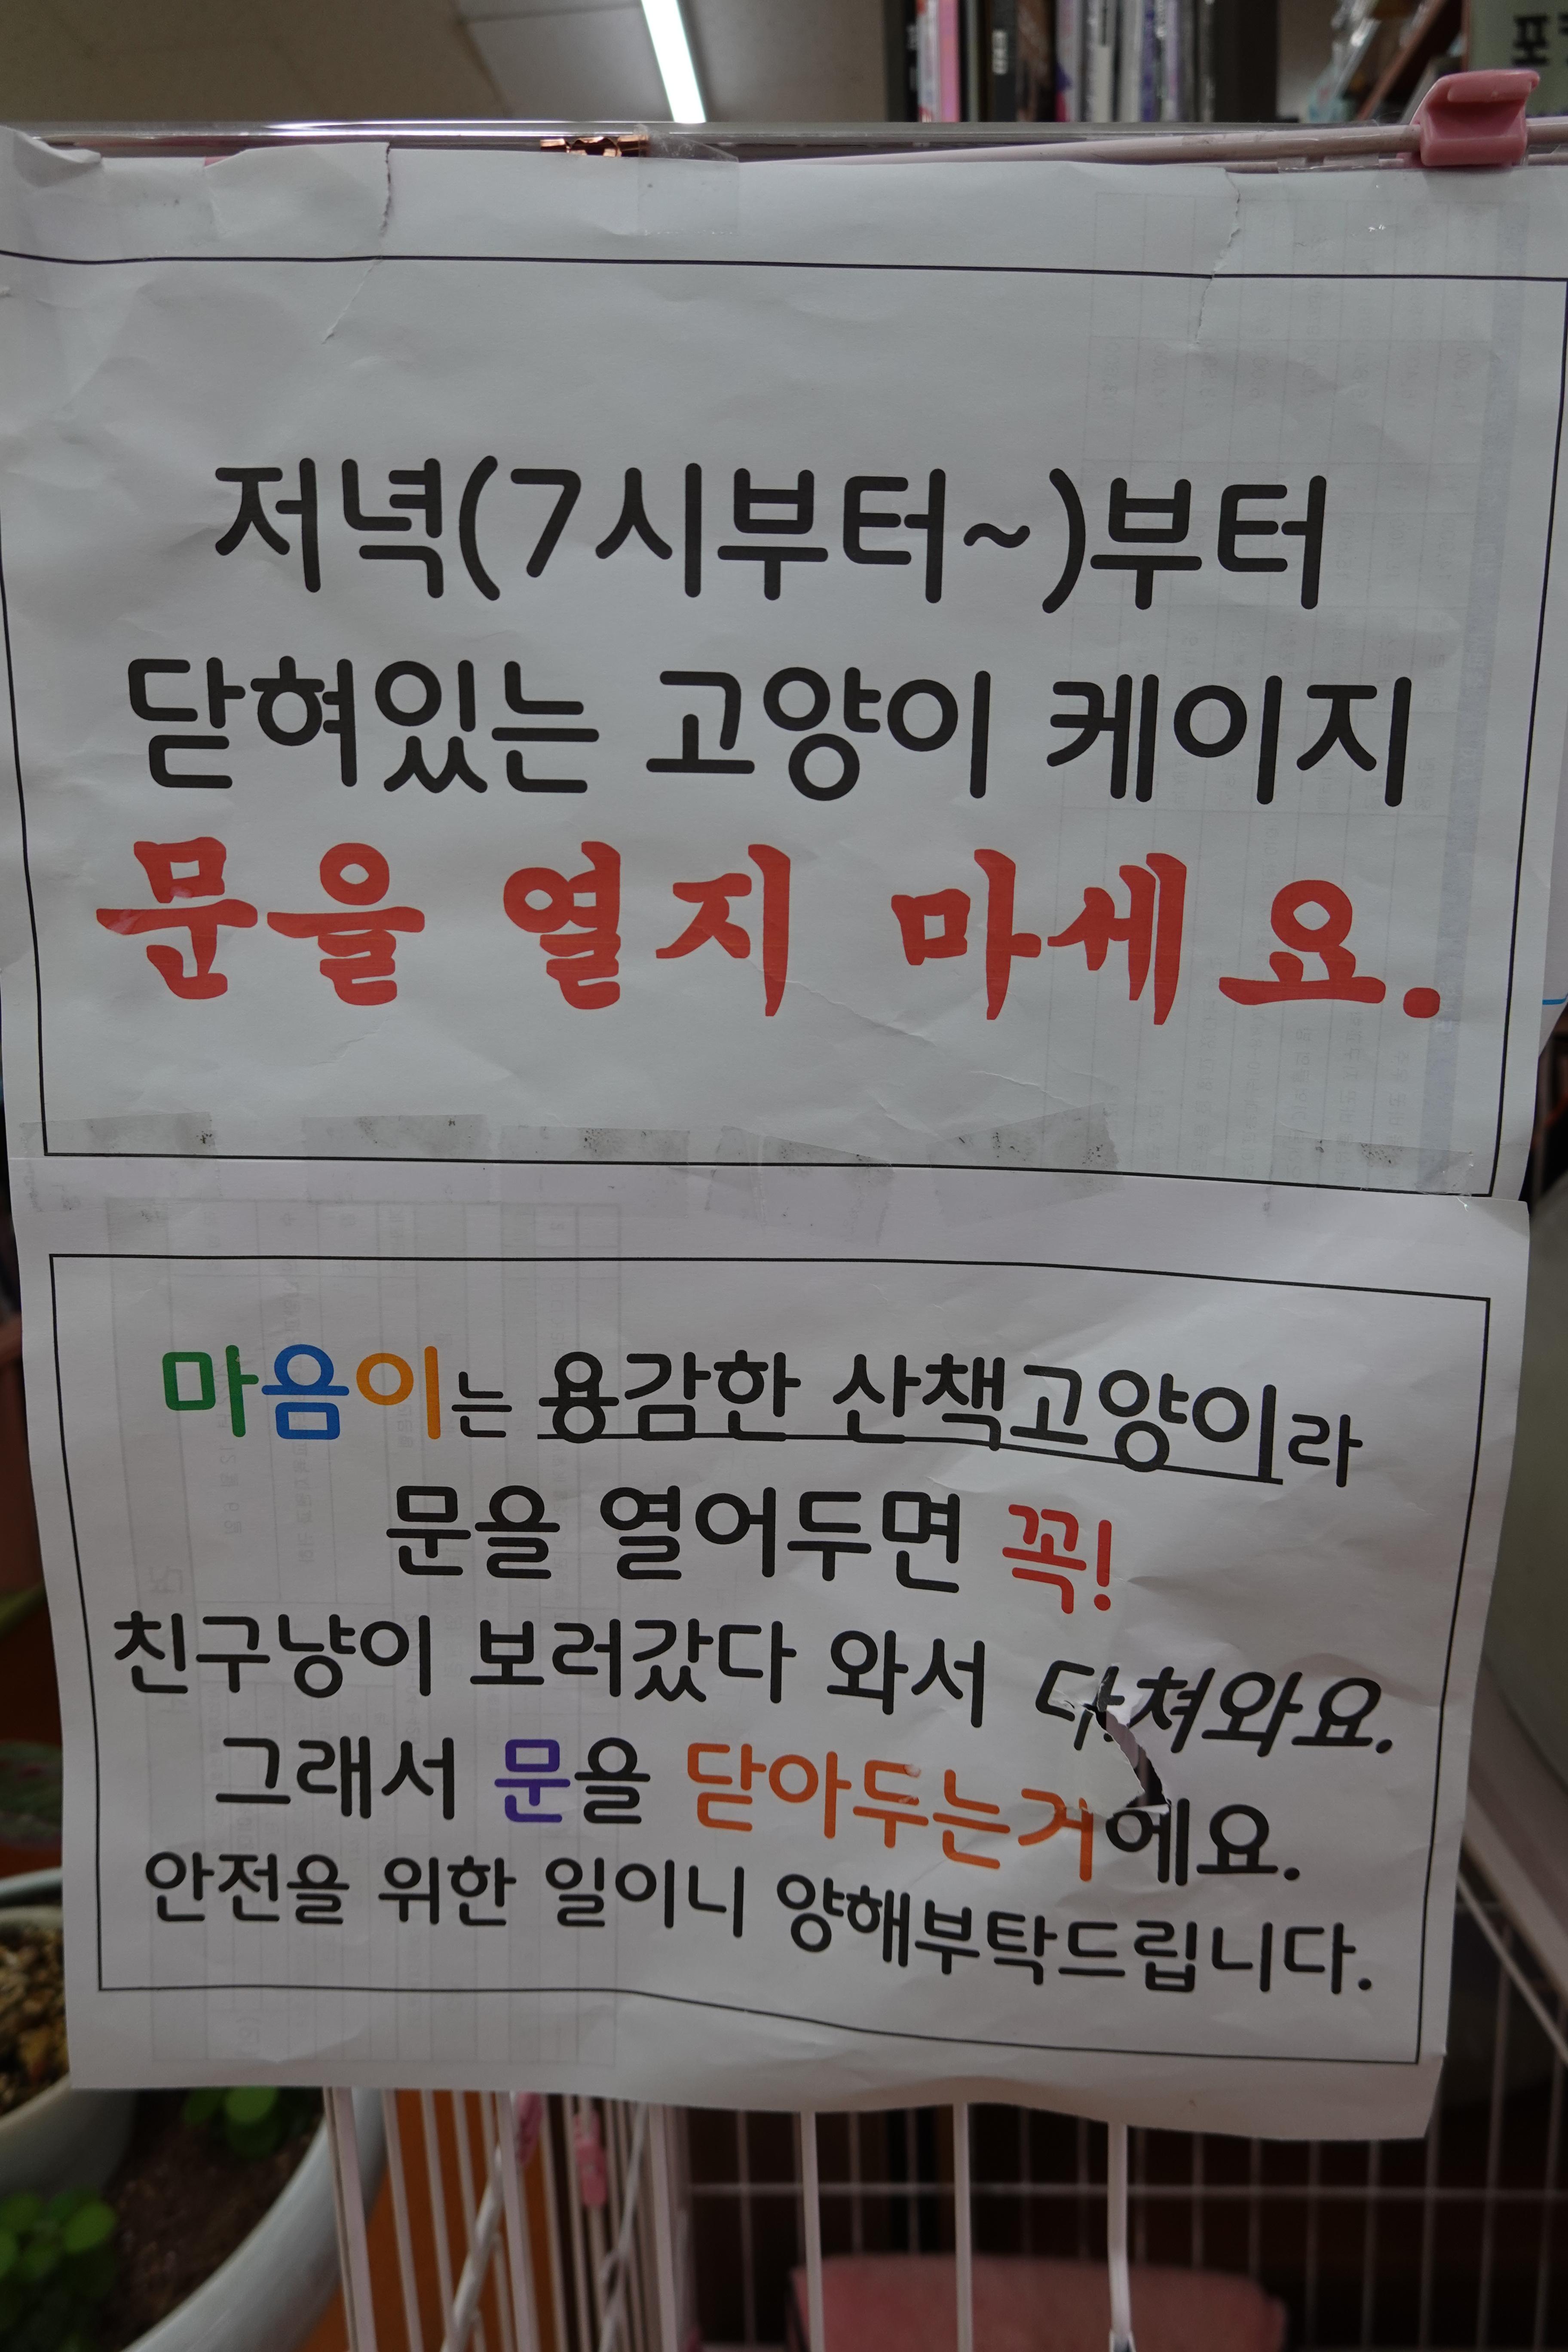 포
저녁(7시부터~)부터
닫혀있는 고양이 케이지
문을 열지 마세요.
마음이는 용감한 산책고양이라
문을 열어두면 꼭!
친구냥이 보러갔다 와서 다쳐와요.
그래서 문을 닫아두는거에요.
안전을 위한 일이니 양해부탁드립니다.